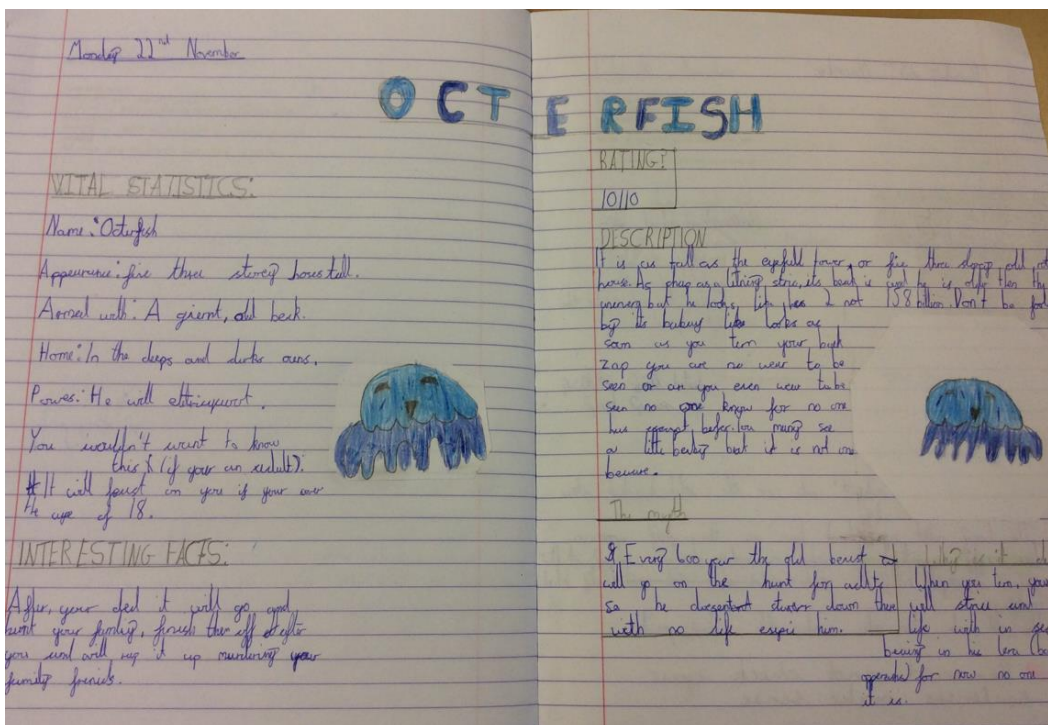 Monday 22nd November
OCTERFISH
VITAL STATISTICS:
Name: Octerfish
Appearence: five three storey houses tall.
Armed with: A giant, old beck.
Home: In the deeps and darks
Power: He will
You wouldn't want to know
this * (if your an adult).
* It will feast on you if your over
the age of 18.
INTERESTING FACTS:
After, your ded it will go and
hunt your family, finish them off after
you and will rap it up murdering your
family frenids.
RATING?
10/10
DESCRIPTION
It is as tall as the eyefull tower, or five three storey old
house. As sharp as a litning stric, its beak is he is older then the
but he looks like hes 2 not 13.8 billion. Don't be
by its babuy like looks as
soon as you tern your back
Zap you are no wear to be
seen or an you even wear to be
seen no one knows for no one
has befor. You mang see
a little baby but it is not one
beware.
The myth
Every 600 year the old beast
will go on the hunt for adults
so he down
with no life him.
When you tern, your
will stric and
life with in
in his
for now no one
it is.